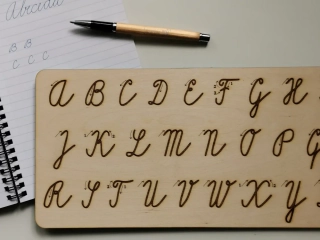 B B
C C C
A B C D E F G H
J K L M N O P
R S T U V W X Y